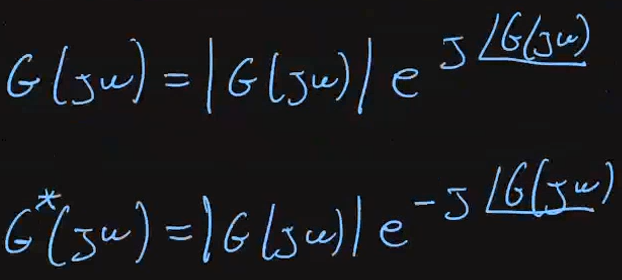 G(jω) = |G(jω)| e^{j∠G(jω)}
G*(jω) = |G(jω)| e^{-j∠G(jω)}